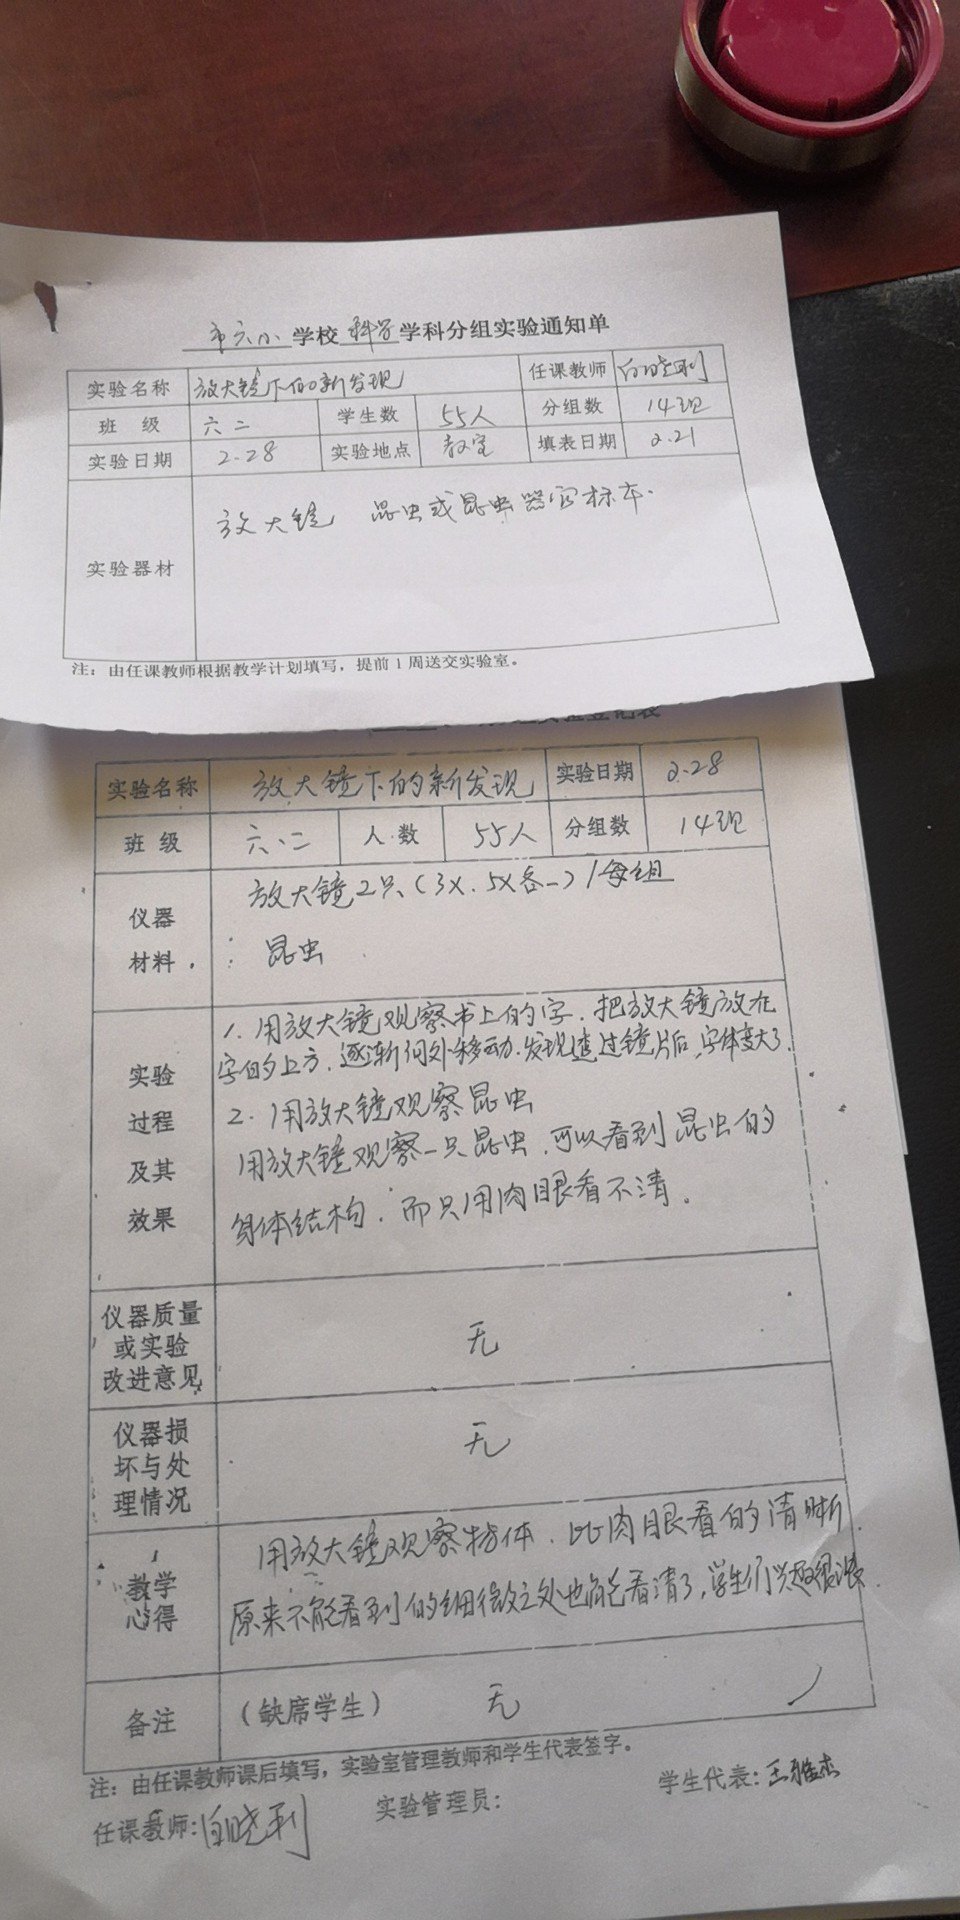 市六小学校科学学科分组实验通知单
实验名称 放大镜下的新发现 任课教师 白晓利
班 级 六二 学生数 55人 分组数 14组
实验日期 2.28 实验地点 教室 填表日期 2.21
实验器材 放大镜 昆虫或昆虫器官标本.
注：由任课教师根据教学计划填写，提前1周送交实验室。
实验名称 放大镜下的新发现 实验日期 2.28
班 级 六.二 人 数 55人 分组数 14组
仪器 放大镜2只(3X.5X各一)/每组
材料 昆虫
1. 用放大镜观察书上的字. 把放大镜放在
实验 字的上方. 逐渐向外移动. 发现透过镜片后,字体变大了.
过程 2. 用放大镜观察昆虫
及其 用放大镜观察一只昆虫,可以看到昆虫的
效果 身体结构. 而只用肉眼看不清.
仪器质量
或实验 无
改进意见
仪器损
坏与处 无
理情况
教学 用放大镜观察物体. 比肉眼看的清晰.
心得 原来不能看到的细微之处也能看清了,学生们兴趣很浓.
备注 (缺席学生) 无
注：由任课教师课后填写，实验室管理教师和学生代表签字。
任课教师:白晓利 实验管理员: 学生代表:王雅杰